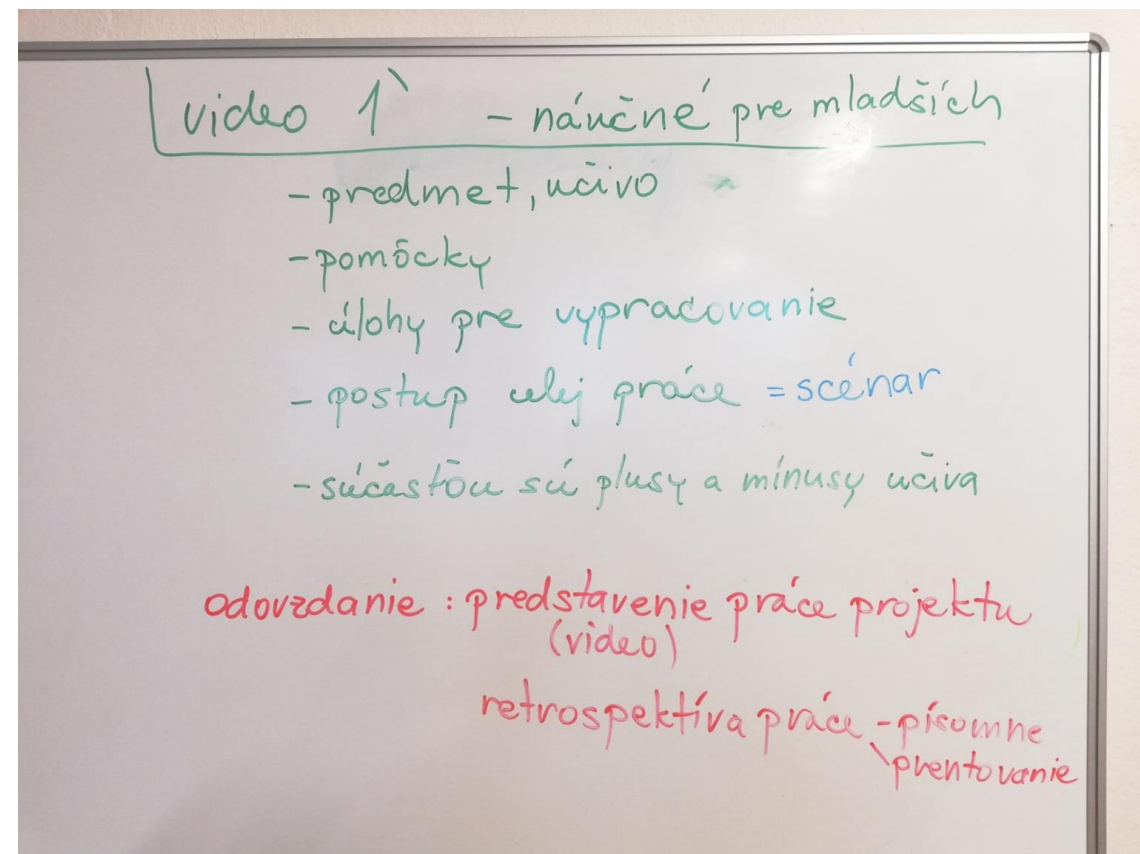 video 1 - náučné pre mladších
- predmet, učivo
- pomôcky
- úlohy pre vypracovanie
- postup celej práce = scénar
- súčasťou sú plusy a mínusy učiva
odovzdanie : predstavenie práce projektu
(video)
retrospektíva práce - písomne
\ prentovanie